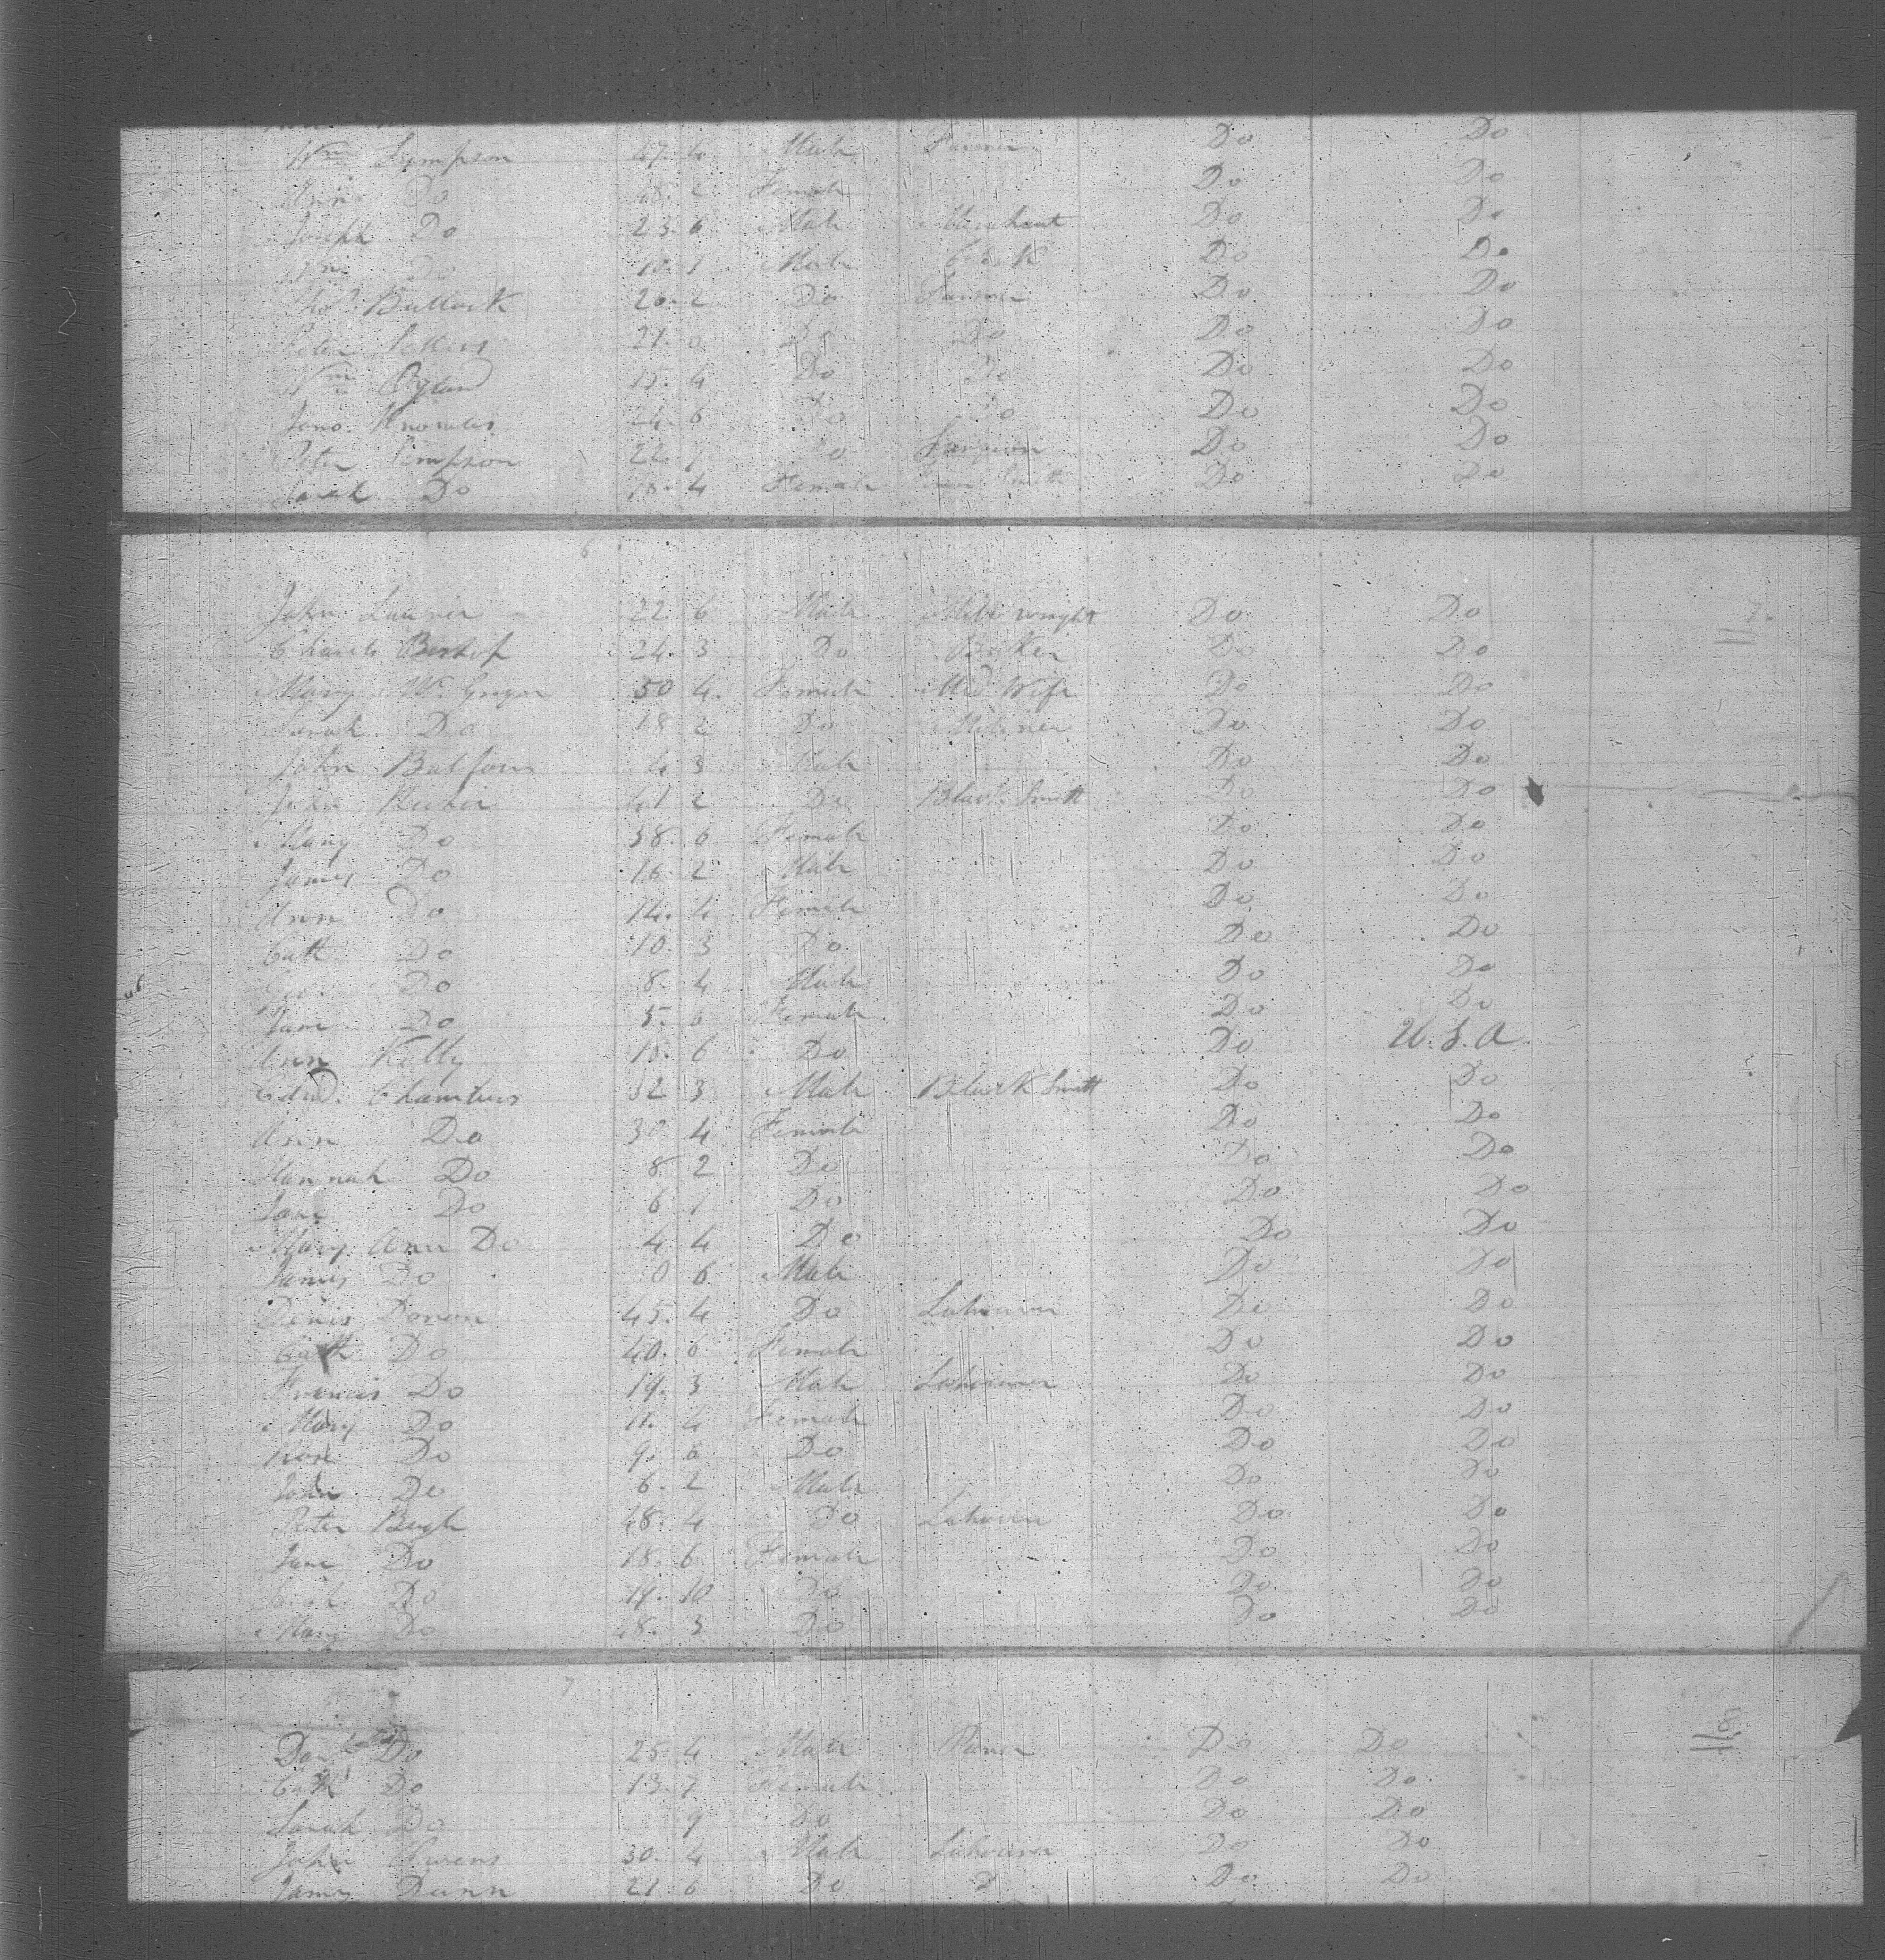 Wm Sympson 47. 4 Male Farmer Do Do
Ann Do 48. 2 Female Do Do
Joseph Do 23. 6 Male Merchant Do Do
Wm Do 1 Male Clerk Do Do
Bullock 26. 2 Do Farmer Do Do
Peter Sellers 21. 0 Do Do Do Do
Wm 15. 4 Do Do Do Do
Jono. Knowles 24. 6 Do Do Do Do
Peter Simpson 22. 7 Do Surgeon Do Do
Sarah Do 18. 4 Female Do Do
6
John Laurier 22 6 Male Mill wright Do Do 7.
Charels Bishop 24. 3 Do Baker Do Do
Mary Mc. Gregor 50 4. Female Mid Wife Do Do
Sarah Do 18 2 Do Miliner Do Do
John Balfour 4 3 Male Do Do
John 41 2 Do Black Smith Do Do
Mary Do 38. 6 Female Do Do
James Do 16. 2 Male Do Do
Ann Do 14. 4 Female Do Do
Cath Do 10. 3 Do Do Do
Do 8. 4 Male Do Do
Jane Do 5. 6 Female Do Do
Ann Kelly 18. 6 Do Do U. S. A
Edwd. Chambers 32 3 Male Black Smith Do Do
Ann Do 30 4 Female Do Do
Hannah Do 8 2 Do Do Do
Jane Do 6 1 Do Do Do
Mary Ann Do 4 4 Do Do Do
James Do 0 6 Male Do Do
Denis Donon 45. 4 Do Labourer Do Do
Cath Do 40. 6 Female Do Do
Francis Do 19. 3 Male Labourer Do Do
Mary Do 11. 4 Female Do Do
Rose Do 9. 6 Do Do Do
John Do 6. 2 Male Do Do
Peter 48. 4 Do Labourer Do Do
Jane Do 18. 6 Female Do Do
Sarah Do 19. 10 Do Do Do
Mary Do 48. 3 Do Do Do
7
Do 25. 4 Male Do Do 8
Cath Do 13. 7 Female Do Do
Sarah Do 9 Do Do Do
John Owens 30. 4 Male Labourer Do Do
James Dunn 21 6 Do D Do Do